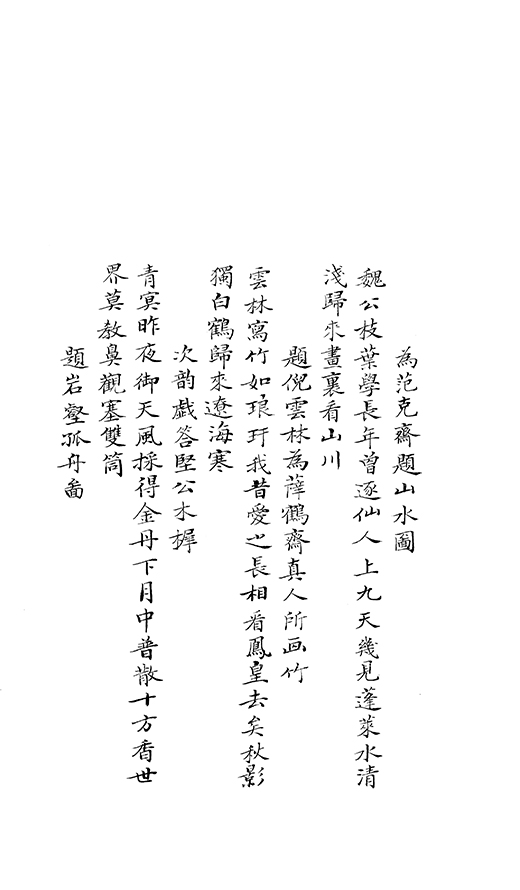 為范克齋題山水圖
魏公枝葉學長年曾逐仙人上九天幾見蓬萊水清
淺歸來畫裏看山川
題倪雲林為薛鶴齋真人所画竹
雲林寫竹如琅玕我昔愛之長相看鳳皇去矣秋影
獨白鶴歸來遼海寒
次韵戲答堅公木樨
青冥昨夜御天風採得金丹下月中普散十方香世
界莫教鼻觀塞雙筒
題岩壑孤舟啚